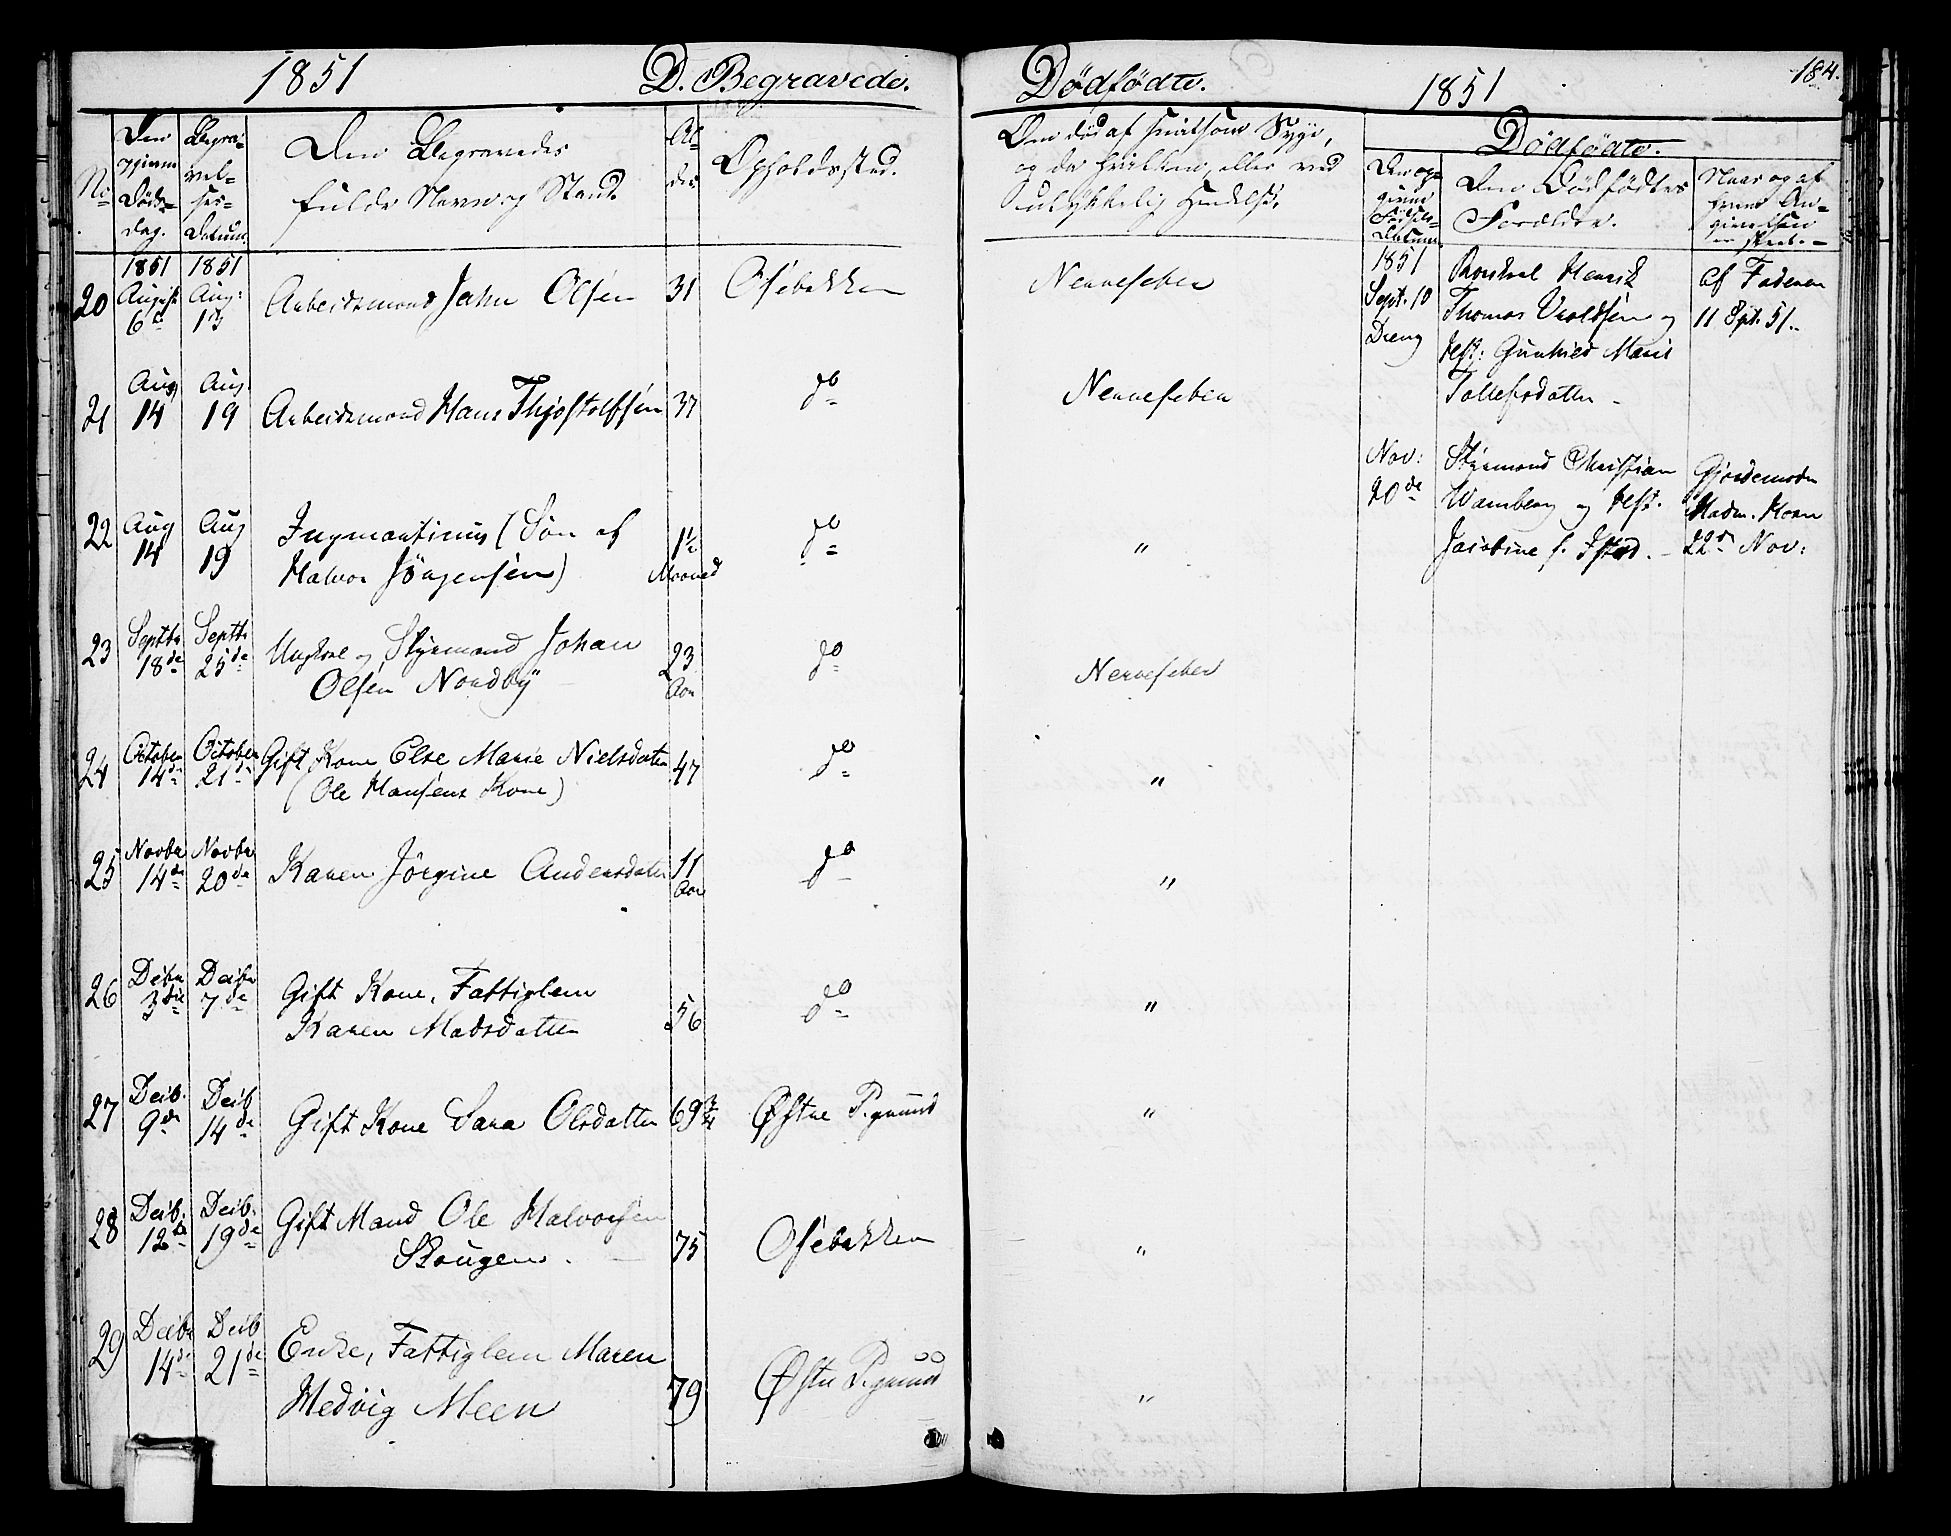 1851 D. Begravede.
No. Den opgivne Døds-dag. Begra-vel-ses-Datum. Den Begravedes fulde Navn og Stand. Al-der Opholdssted.
1851 1851
20 August 6te Aug: 13 Arbeidsmand Jahn Olsen 31 Osebakken
21 Aug 14 Aug. 19 Arbeidsmand Hans Thjostolfsen 37 do
22 Aug 14 Aug 19 Ingmartinius (Søn af
Halvor Jörgensen) 1½ Maaned do
23 Septbr 18de Septbr 25de Ungkarl og Styrmand Johan
Olsen Nordby 23 Aar do
24 October 14de October 21de Gift Kone Else Marie Nielsdatter
(Ole Hansens Kone) 47 do
25 Novbr 14de Novbr 20de Karen Jörgine Andersdatter 11 Aar do
26 Decbr 3die Decbr 7de Gift Kone, Fattiglem
Karen Madsdatter 56 do
27 Decb. 9de Decb 14de Gift Kone Sara Olsdatter 69¾ Østre P.grund
28 Decb. 12te Decb. 19de Gift Mand Ole Halvorsen
Skougen. 75 Osebakken
29 Decbr 14de Decb 21de Enke, Fattiglem Maren
Hedvig Meen 79 Østre P.grund
Dødfødte. 1851 184.
Om død af smitsom Syge,
og da hvilken, eller ved
ulykkelig Hendelse.
Dødfødte.
Den op-givne Fødsels-Datum. Den Dødfødtes Forældre. Naar og af hvem An-givelsen er skeet.
Nervefeber
Nervefeber
"
Nervefeber
"
"
"
"
"
"
1851
Sept. 10
Dreng
Henrik
Thomas og
Hst: Marie
Tollefsdatter
Af Faderen
11 Spt. 51.
Nov:
20de
Styrmand Christian
Wamberg og Hst.
Jacobine f.
Gjordemoder
Madm. Horn
22de Nov: